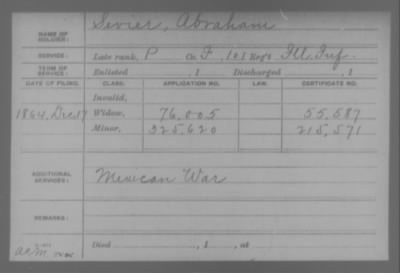 NAME OF SOLDIER: Sevier, Abraham
SERVICE: Late rank, P Co. F, 101 Reg't Ill. Inf.
TERM OF SERVICE: Enlisted , 1 Discharged , 1
DATE OF FILING. CLASS. APPLICATION NO. LAW. CERTIFICATE NO.
Invalid,
1864, Dec. 17 Widow, 76,005 55,587
Minor, 325,620 215,571
ADDITIONAL SERVICES: Mexican War
REMARKS:
Died , 1 , at